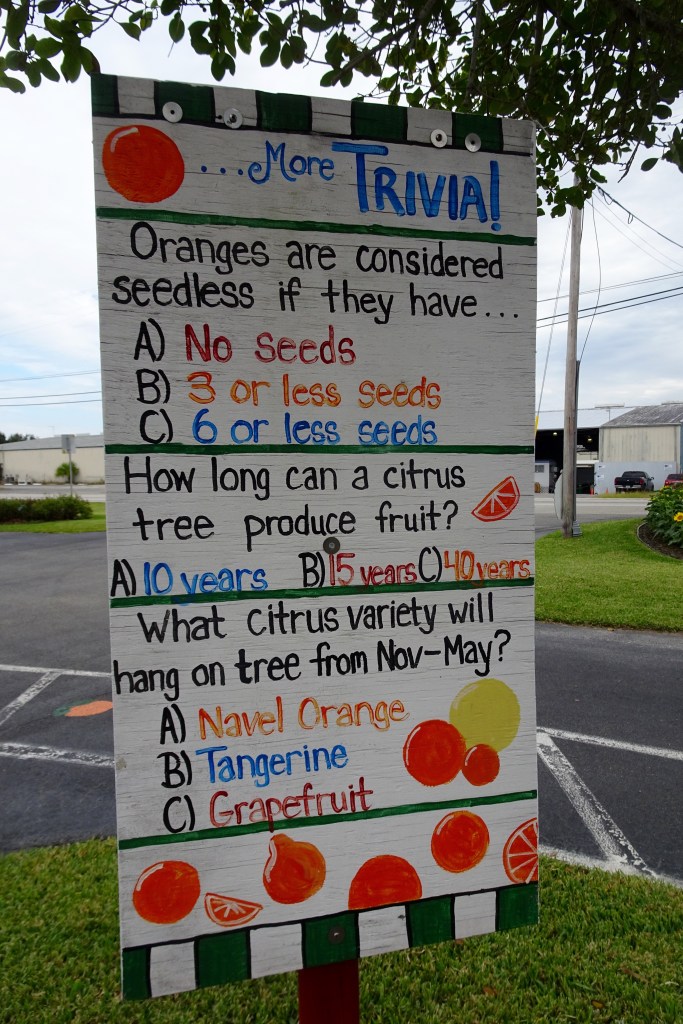 ...More TRIVIA!
Oranges are considered
seedless if they have...
A) No seeds
B) 3 or less seeds
C) 6 or less seeds
How long can a citrus
tree produce fruit?
A) 10 years B) 15 years C) 40 years
What citrus variety will
hang on tree from Nov-May?
A) Navel Orange
B) Tangerine
C) Grapefruit